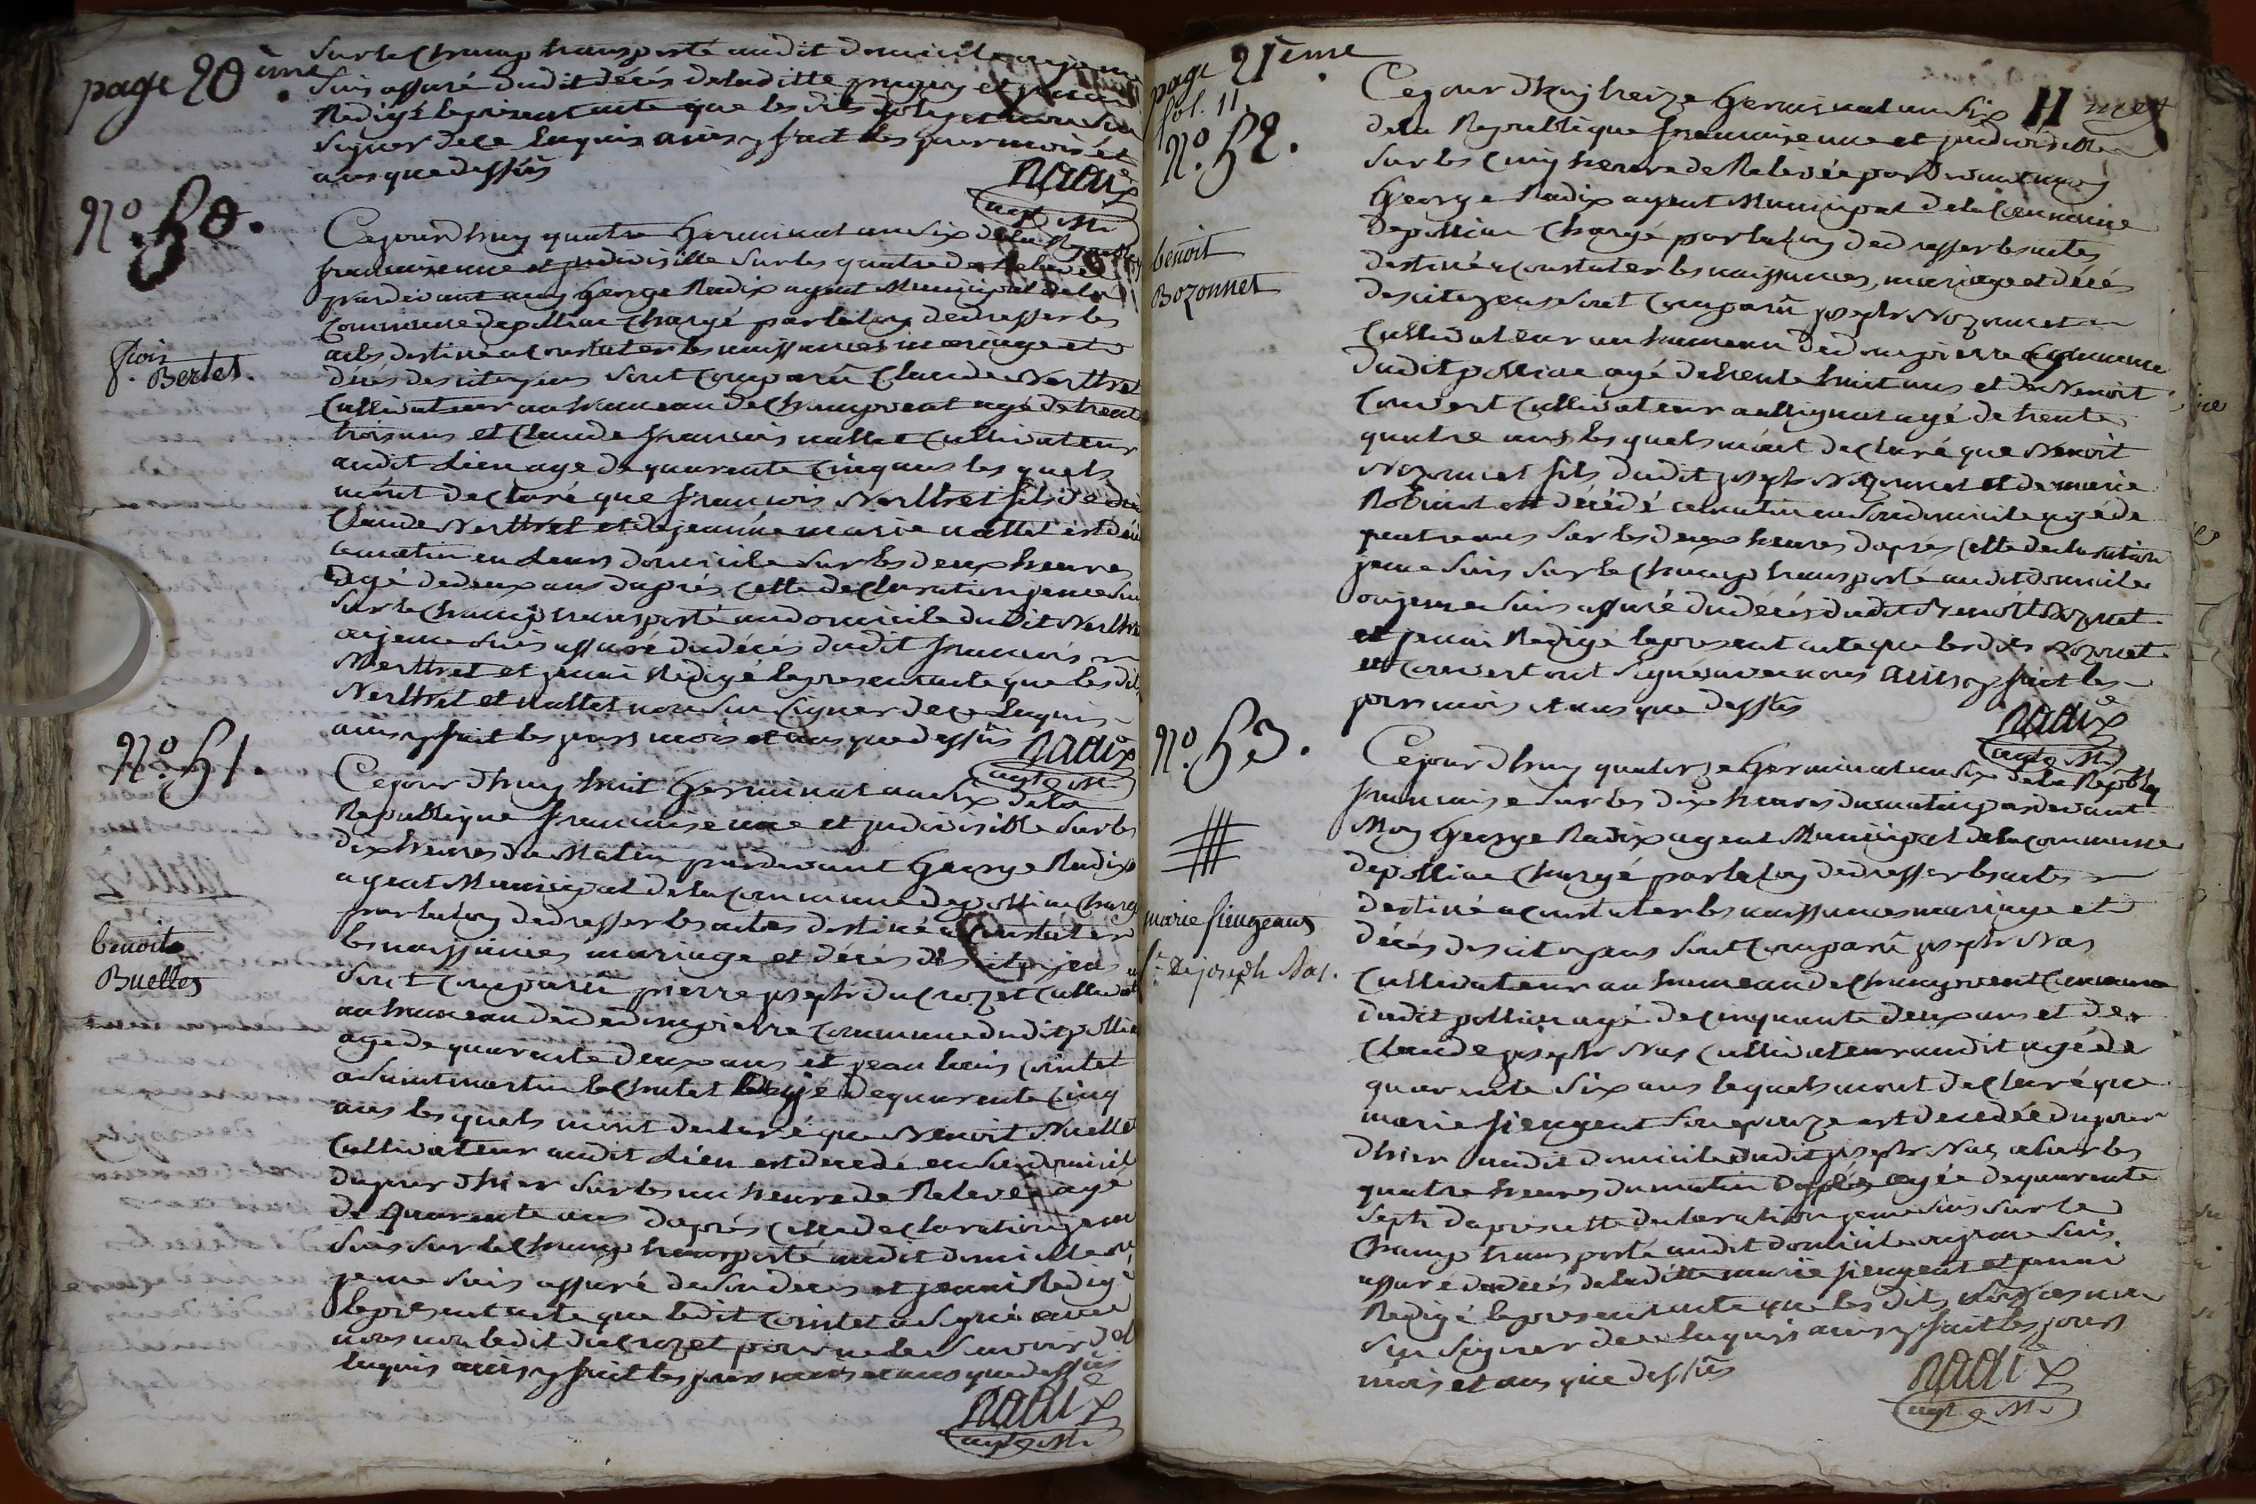 page 20 ème.
sur le Champ transporté audit domicile ou je me
suis assuré dudit décés de laditte et jenai
Rédigé le présent acte que les dits non Su
signer de ce Enquis ainsy fait les jour mois et
ans que dessus
Radix
agt M.
N.o 50.
fçois
Bertet.
Cejourdhuy quatre Germinal an Six de la Republiq
francaise une et indivisible sur les quatre de Relevé
pardevant moy George Radix agent Municipal de la
Commune de polliat Chargé par la loy de dresser les
actes destiné a Constater les naissances mariage et
décés des citoyens sont Comparu Claude Berthet
Cultivateur au hameau de Champvent agé de trente
trois ans et Claude francois nallet Cultivateur
audit Lieu age de quarante Cinq ans les quels
mont déclaré que francois Berthet fils de dit
Claude Berthet et de jeanne marie nallet est décé
ce matin en Leurs domicile sur les deux heures
agé de deux ans daprés cette declaration je me sui
sur le Champ transporté au domicile dudit Berthet
ou je me suis assuré du décés dudit francois
Berthet et jenai Rédigé le present acte que les dit
Berthet et nallet non Su signer de ce Enquis
ainsy fait les jours mois et ans que dessus
Radix
agt M.
N.o 51.
benoit
Buellet
Cejourdhuy huit Germinal an Six de la
Republique francaise une et indivisible sur les
dix heures du Matin pardevant George Radix
agent Municipal de la Commune de polliat Chargé
par la loy de dresser les actes destiné a Constater
les naissances mariage et décés des citoyens
sont Comparu pierre joseph du Crozet Cultivat
au hameau de dompierre Commune dudit pollia
age de quarante deux ans et jean louis Cointet
a Saint martin le Chatel agé de quarante Cinq
ans les quels mont declaré que Benoit Buellet
Cultivateur audit Lieu est decedé en son domicile
du jour dhier sur les un heure de Relevé agé
de quarante ans daprés cette declaration je me
suis sur le Champ transporté audit domicille ou
je me suis assuré de son décés et jenai Redigé
le présent acte que ledit Cointet a Signé avec
nous non ledit du Crozet pour ne le Savoir de
Enquis ainsy fait les jours mois et ans que dessus
Radix
agt M.
page 21 ème.
fol. 11.
N.o 52.
benoit
Bozonnet
Cejourdhuy treize Germinal an Six
de la Republique francaise une et indivisible
sur les Cinq heures de Relevée par devant moy
George Radix agent Municipal de la Commune
de polliat Chargé par la loy de dresser les actes
destiné a constater les naissances, mariage et décés
des citoyens sont Comparu joseph Bozonnet
Cultivateur au hameau de dompierre Commune
dudit polliat agé de trente huit ans et de Benoit
Convert Cultivateur a attignat agé de trente
quatre ans les quels mont declaré que Benoit
Bozonnet fils dudit joseph Bozonnet et de marie
Robin est décédé ce matin en son domicile agé de
quatre ans sur les deux heures daprés cette declaration
je me suis sur le Champ transporté audit domicile
ou je me suis assuré du décés dudit Benoit Bozonet
et jenai Redigé le present acte que les dits Bozonet
et Convert ont signé avec nous ainsy fait les
jours mois et ans que dessus
Radix
agt M.
N.o 53.
marie fiengeant
f.e de joseph Bas.
Cejourdhuy quatorze Germinal an Six de la Republiq
francaise sur les dix heures du matin pardevant
Moy George Radix agent Municipal de la Commune
de polliat Chargé par la loy de dresser les actes
destiné a Constater les naissances mariage et
décés des citoyens sont Comparu joseph Bas
Cultivateur au hameau de Champvent Commune
dudit polliat agé de Cinquante deux ans et de
Claude joseph Bas Cultivateur audit agé de
quarante six ans lequels mont declaré que
marie fiengent son epouze est decedée du jour
dhier audit domicile dudit joseph Bas a sur les
quatre heures du matin agée de quarante
sept daprés cette declaration je me suis sur le
Champ transporté audit domicile ou je me suis
assuré du décés de laditte marie fiengent et jenai
Redigé le present acte que les dits Bas non
Su signer de ce Enquis ainsy fait les jours
mois et ans que dessus
Radix
agt M.